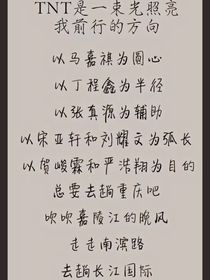 TNT是一束光照亮
我前行的方向
以马嘉祺为圆心
以丁程鑫为半径
以张真源为辅助
以宋亚轩和刘耀文为弧长
以贺峻霖和严浩翔为目的
总要去趟重庆吧
吹吹嘉陵江的晚风
走走南滨路
去趟长江国际